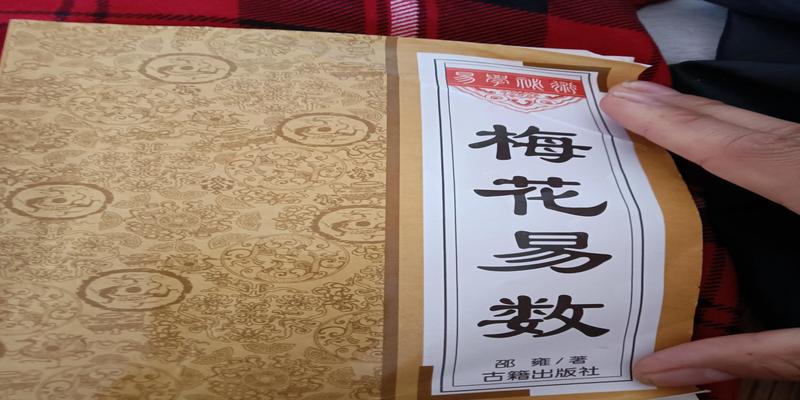 易學秘術
梅花易数
邵雍/著
古籍出版社